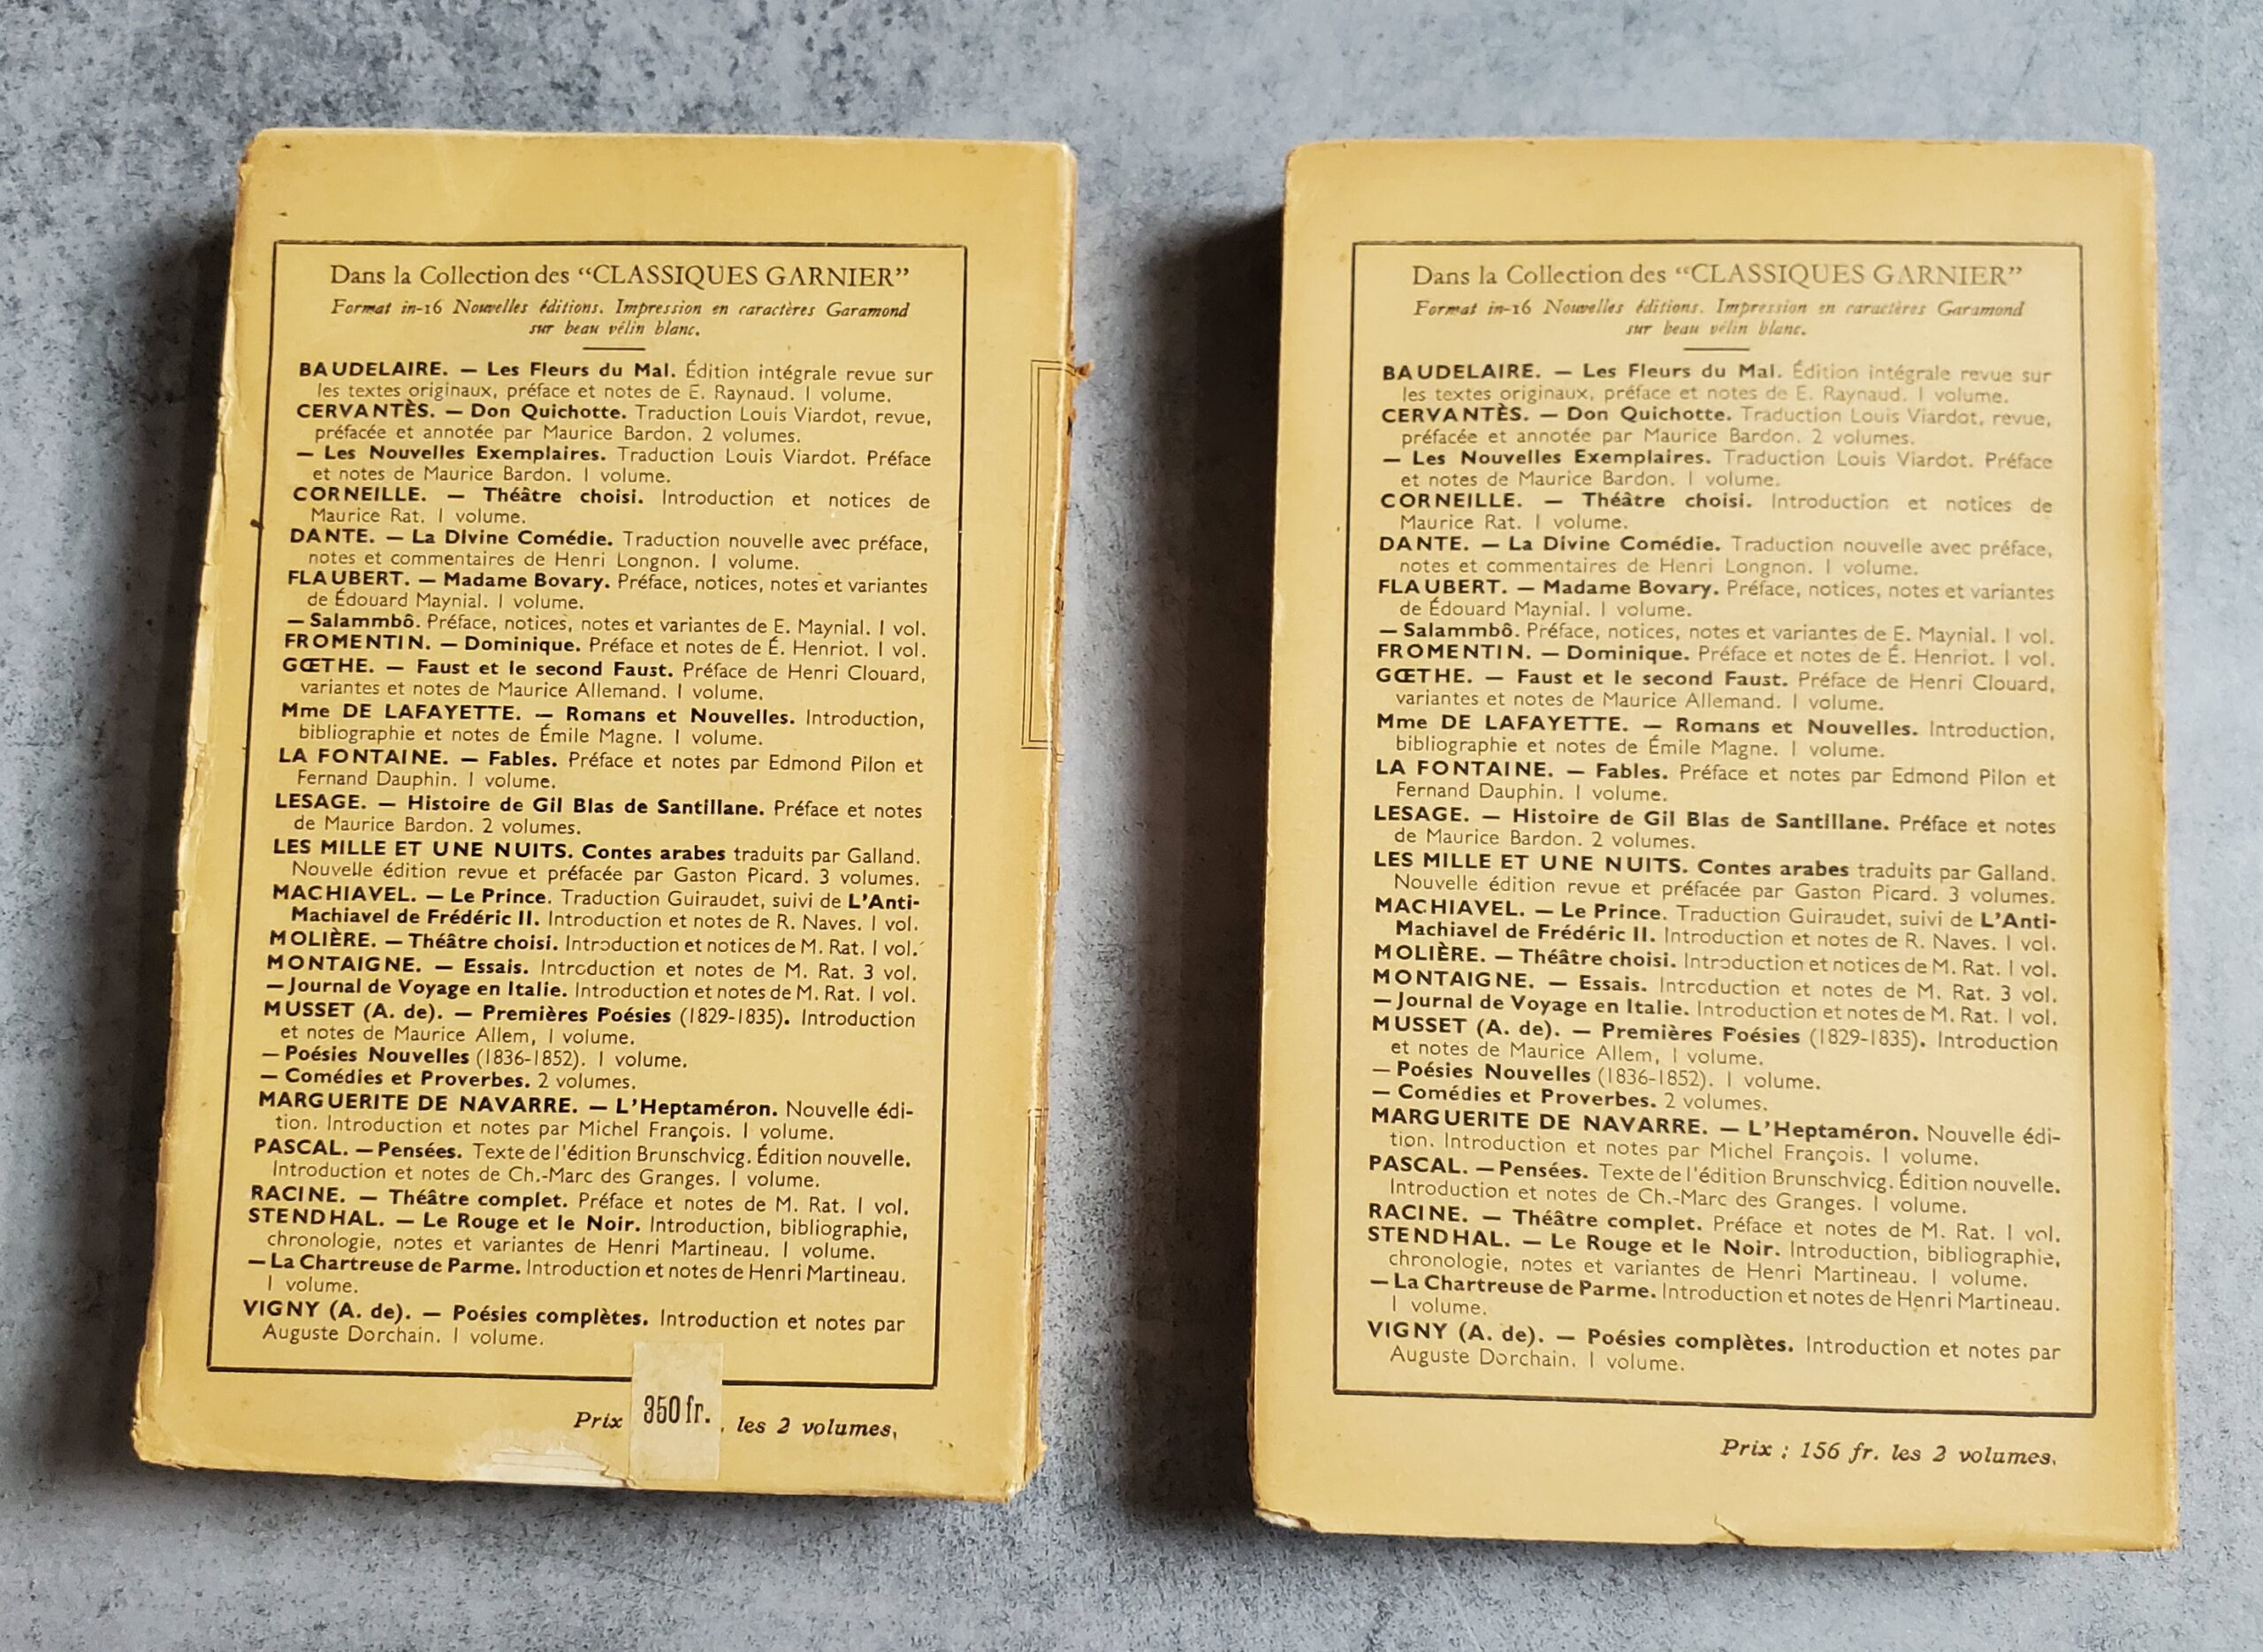 Dans la Collection des “CLASSIQUES GARNIER”
Format in-16 Nouvelles éditions. Impression en caractères Garamond
sur beau vélin blanc.
BAUDELAIRE. — Les Fleurs du Mal. Édition intégrale revue sur
les textes originaux, préface et notes de E. Raynaud. 1 volume.
CERVANTÈS. — Don Quichotte. Traduction Louis Viardot, revue,
préfacée et annotée par Maurice Bardon. 2 volumes.
— Les Nouvelles Exemplaires. Traduction Louis Viardot. Préface
et notes de Maurice Bardon. 1 volume.
CORNEILLE. — Théâtre choisi. Introduction et notices de
Maurice Rat. 1 volume.
DANTE. — La Divine Comédie. Traduction nouvelle avec préface,
notes et commentaires de Henri Longnon. 1 volume.
FLAUBERT. — Madame Bovary. Préface, notices, notes et variantes
de Édouard Maynial. 1 volume.
— Salammbô. Préface, notices, notes et variantes de E. Maynial. 1 vol.
FROMENTIN. — Dominique. Préface et notes de É. Henriot. 1 vol.
GŒTHE. — Faust et le second Faust. Préface de Henri Clouard,
variantes et notes de Maurice Allemand. 1 volume.
Mme DE LAFAYETTE. — Romans et Nouvelles. Introduction,
bibliographie et notes de Émile Magne. 1 volume.
LA FONTAINE. — Fables. Préface et notes par Edmond Pilon et
Fernand Dauphin. 1 volume.
LESAGE. — Histoire de Gil Blas de Santillane. Préface et notes
de Maurice Bardon. 2 volumes.
LES MILLE ET UNE NUITS. Contes arabes traduits par Galland.
Nouvelle édition revue et préfacée par Gaston Picard. 3 volumes.
MACHIAVEL. — Le Prince. Traduction Guiraudet, suivi de L'Anti-
Machiavel de Frédéric II. Introduction et notes de R. Naves. 1 vol.
MOLIÈRE. — Théâtre choisi. Introduction et notices de M. Rat. 1 vol.
MONTAIGNE. — Essais. Introduction et notes de M. Rat. 3 vol.
— Journal de Voyage en Italie. Introduction et notes de M. Rat. 1 vol.
MUSSET (A. de). — Premières Poésies (1829-1835). Introduction
et notes de Maurice Allem, 1 volume.
— Poésies Nouvelles (1836-1852). 1 volume.
— Comédies et Proverbes. 2 volumes.
MARGUERITE DE NAVARRE. — L'Heptaméron. Nouvelle édi-
tion. Introduction et notes par Michel François. 1 volume.
PASCAL. — Pensées. Texte de l'édition Brunschvicg. Édition nouvelle.
Introduction et notes de Ch.-Marc des Granges. 1 volume.
RACINE. — Théâtre complet. Préface et notes de M. Rat. 1 vol.
STENDHAL. — Le Rouge et le Noir. Introduction, bibliographie,
chronologie, notes et variantes de Henri Martineau. 1 volume.
— La Chartreuse de Parme. Introduction et notes de Henri Martineau.
1 volume.
VIGNY (A. de). — Poésies complètes. Introduction et notes par
Auguste Dorchain. 1 volume.
Prix 350 fr. , les 2 volumes.
Dans la Collection des “CLASSIQUES GARNIER”
Format in-16 Nouvelles éditions. Impression en caractères Garamond
sur beau vélin blanc.
BAUDELAIRE. — Les Fleurs du Mal. Édition intégrale revue sur
les textes originaux, préface et notes de E. Raynaud. 1 volume.
CERVANTÈS. — Don Quichotte. Traduction Louis Viardot, revue,
préfacée et annotée par Maurice Bardon. 2 volumes.
— Les Nouvelles Exemplaires. Traduction Louis Viardot. Préface
et notes de Maurice Bardon. 1 volume.
CORNEILLE. — Théâtre choisi. Introduction et notices de
Maurice Rat. 1 volume.
DANTE. — La Divine Comédie. Traduction nouvelle avec préface,
notes et commentaires de Henri Longnon. 1 volume.
FLAUBERT. — Madame Bovary. Préface, notices, notes et variantes
de Édouard Maynial. 1 volume.
— Salammbô. Préface, notices, notes et variantes de E. Maynial. 1 vol.
FROMENTIN. — Dominique. Préface et notes de É. Henriot. 1 vol.
GŒTHE. — Faust et le second Faust. Préface de Henri Clouard,
variantes et notes de Maurice Allemand. 1 volume.
Mme DE LAFAYETTE. — Romans et Nouvelles. Introduction,
bibliographie et notes de Émile Magne. 1 volume.
LA FONTAINE. — Fables. Préface et notes par Edmond Pilon et
Fernand Dauphin. 1 volume.
LESAGE. — Histoire de Gil Blas de Santillane. Préface et notes
de Maurice Bardon. 2 volumes.
LES MILLE ET UNE NUITS. Contes arabes traduits par Galland.
Nouvelle édition revue et préfacée par Gaston Picard. 3 volumes.
MACHIAVEL. — Le Prince. Traduction Guiraudet, suivi de L'Anti-
Machiavel de Frédéric II. Introduction et notes de R. Naves. 1 vol.
MOLIÈRE. — Théâtre choisi. Introduction et notices de M. Rat. 1 vol.
MONTAIGNE. — Essais. Introduction et notes de M. Rat. 3 vol.
— Journal de Voyage en Italie. Introduction et notes de M. Rat. 1 vol.
MUSSET (A. de). — Premières Poésies (1829-1835). Introduction
et notes de Maurice Allem, 1 volume.
— Poésies Nouvelles (1836-1852). 1 volume.
— Comédies et Proverbes. 2 volumes.
MARGUERITE DE NAVARRE. — L'Heptaméron. Nouvelle édi-
tion. Introduction et notes par Michel François. 1 volume.
PASCAL. — Pensées. Texte de l'édition Brunschvicg. Édition nouvelle.
Introduction et notes de Ch.-Marc des Granges. 1 volume.
RACINE. — Théâtre complet. Préface et notes de M. Rat. 1 vol.
STENDHAL. — Le Rouge et le Noir. Introduction, bibliographie,
chronologie, notes et variantes de Henri Martineau. 1 volume.
— La Chartreuse de Parme. Introduction et notes de Henri Martineau.
1 volume.
VIGNY (A. de). — Poésies complètes. Introduction et notes par
Auguste Dorchain. 1 volume.
Prix : 156 fr. les 2 volumes.